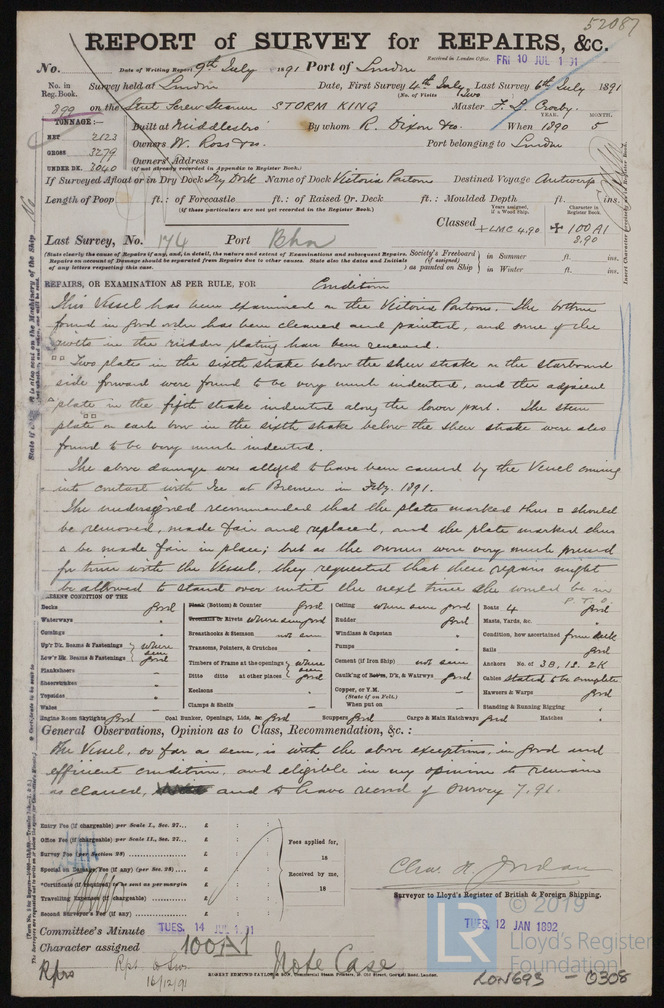 52087
REPORT of SURVEY for REPAIRS, &c.
Received in London Office FRI 10 JUL 91
No. Date of Writing Report 9th July 1891 Port of London
No. in Reg. Book. Survey held at London Date, First Survey 4th July Last Survey 6th July 1891
(No. of Visits Two
899 on the Steel Screw Steamer STORM KING Master F. D. Crosby.
TONNAGE:— YEAR. MONTH.
NET 2123 Built at Middlesbro' By whom R. Dixon & Co. When 1890 5
GROSS 3279 Owners W. Ross & Co. Port belonging to London
UNDER DK. 3040 Owners' Address
(if not already recorded in Appendix to Register Book.)
If Surveyed Afloat or in Dry Dock Dry Dock Name of Dock Victoria Pontoon Destined Voyage Antwerp
Length of Poop ft.: of Forecastle ft.: of Raised Qr. Deck ft.: Moulded Depth ft. ins.
(If these particulars are not yet recorded in the Register Book.)
Years assigned, if a Wood Ship. Character in Register Book.
Classed +LMC 4.90 ✠ 100A1
8.90
Last Survey, No. 174 Port Bhn
(State clearly the cause of Repairs if any, and, in detail, the nature and extent of Examinations and subsequent Repairs.
Repairs on account of Damage should be separated from Repairs due to other causes. State also the dates and Initials
of any letters respecting this case.
Society's Freeboard (if assigned) as painted on Ship
in Summer ft. ins.
in Winter ft. ins.
REPAIRS, OR EXAMINATION AS PER RULE, FOR Condition
This Vessel has been examined on the Victoria Pontoon. The bottom
found in good order has been cleaned and painted, and some of the
rivets in the rudder plating have been renewed.
Two plates in the sixth strake below the sheer strake on the starboard
side forward were found to be very much indented, and the adjacent
plate in the fifth strake indented along the lower part. The stem
plates on each bow in the sixth strake below the sheer strake were also
found to be very much indented.
The above damage was alleged to have been caused by the Vessel coming
into contact with Ice at Bremen in Feby. 1891.
The undersigned recommended that the plates marked thus □ should
be removed, made fair and replaced, and the plate marked thus
be made fair in place; but as the owners were very much pressed
for time with the Vessel, they requested that these repairs might
be allowed to stand over until the next time she would be in
P.T.O.
PRESENT CONDITION OF THE
Decks good
Waterways "
Comings "
Up'r Dk. Beams & Fastenings where seen good
Low'r Dk. Beams & Fastenings
Planksheers —
Sheerstrakes —
Topsides —
Wales —
Plank (Bottom) & Counter Good
Treenails or Rivets where seen good
Breasthooks & Stemson not seen
Transoms, Pointers, & Crutches "
Timbers of Frame at the openings where seen good
Ditto ditto at other places
Keelsons "
Clamps & Shelfs —
Ceiling where seen good
Rudder "
Windlass & Capstan "
Pumps "
Cement (if Iron Ship) not seen
Caulk'ng of Bottm, D'ks, & Watrwys good
Copper, or Y.M. —
(State if on Felt.)
When put on —
Boats 4 Good
Masts, Yards, &c. "
Condition, how ascertained from deck
Sails Good
Anchors No. of 3B, 1S. 2K
Cables stated to be complete
Hawsers & Warps Good
Standing & Running Rigging "
Engine Room Skylights good Coal Bunker, Openings, Lids, &c good Scuppers good Cargo & Main Hatchways good Hatches "
General Observations, Opinion as to Class, Recommendation, &c. :
The Vessel, so far as seen, is with the above exceptions, in good and
efficient condition, and eligible in my opinion to remain
as classed, and to have record of survey 7.91.
Entry Fee (if chargeable) per Scale I., Sec. 27... £ : :
Office Fee (if chargeable) per Scale II., Sec. 27... £ : :
Survey Fee (per Section 28) £ : :
Special or Damage Fee (if any) (per Sec. 28) £ : :
*Certificate (if required) to be sent as per margin £ : :
Travelling Expenses (if chargeable) £ : :
Second Surveyor's Fee (if any) £ : :
Fees applied for, 18
Received by me, 18
Chas. H. Jordan
Surveyor to Lloyd's Register of British & Foreign Shipping.
Committee's Minute TUES. 14 JUL 91
TUES. 12 JAN 1892
Character assigned 100A1
Note Case
Rprs
16/12/91
ROBERT EDMUND TAYLOR & SON, Commercial Steam Printers, 19, Old Street, Goswell Road, London.
LON693 - 0308
LR
© 2019
Lloyd's Register
Foundation